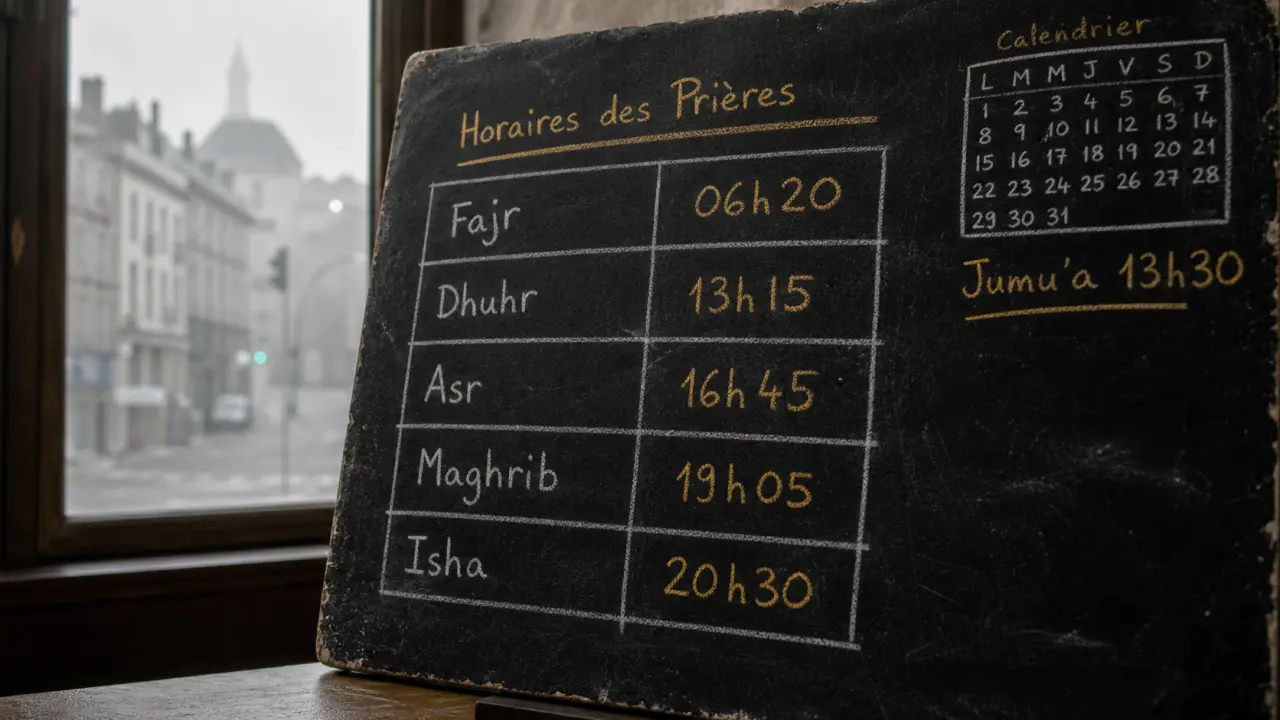 Horaires des Prières
Fajr 06h20
Dhuhr 13h15
Asr 16h45
Maghrib 19h05
Isha 20h30
Calendrier
L M M J V S D
1 2 3 4 5 6 7
8 9 10 11 12 13 14
15 16 17 18 19 20 21
22 23 24 25 26 27 28
29 30 31
Jumu'a 13h30